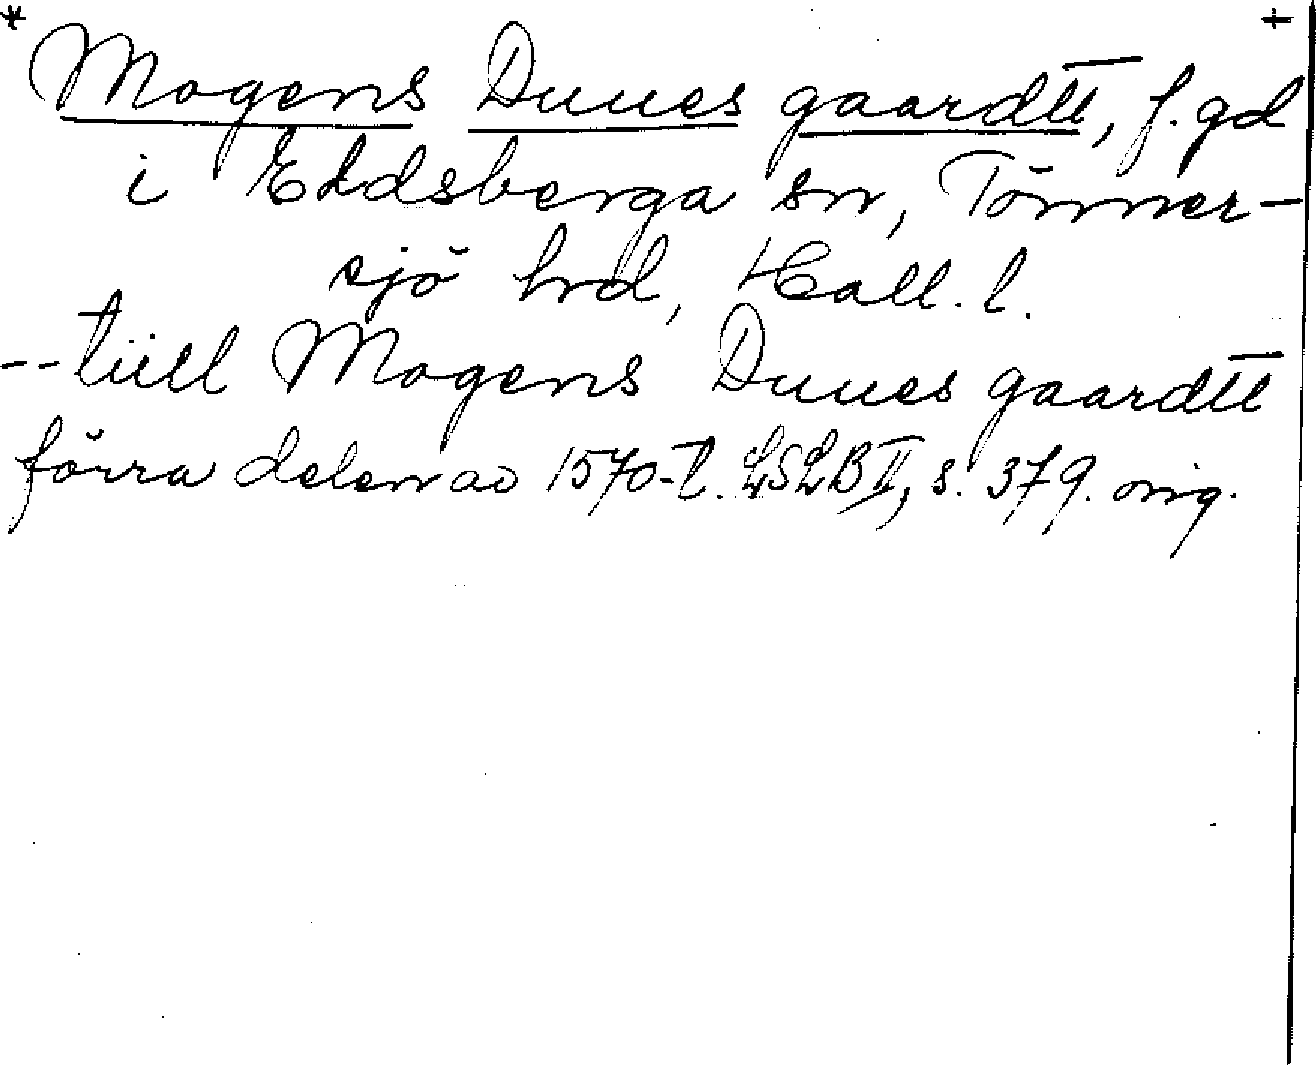 * +
Mogens Duues gaardtt, f. gd
i Eldsberga sn, Tönner-
sjö hrd, Hall. l.
-- tüll Mogens Duues gaardtt
förra delen av 1570-t. LSLB II, s. 379. orig.